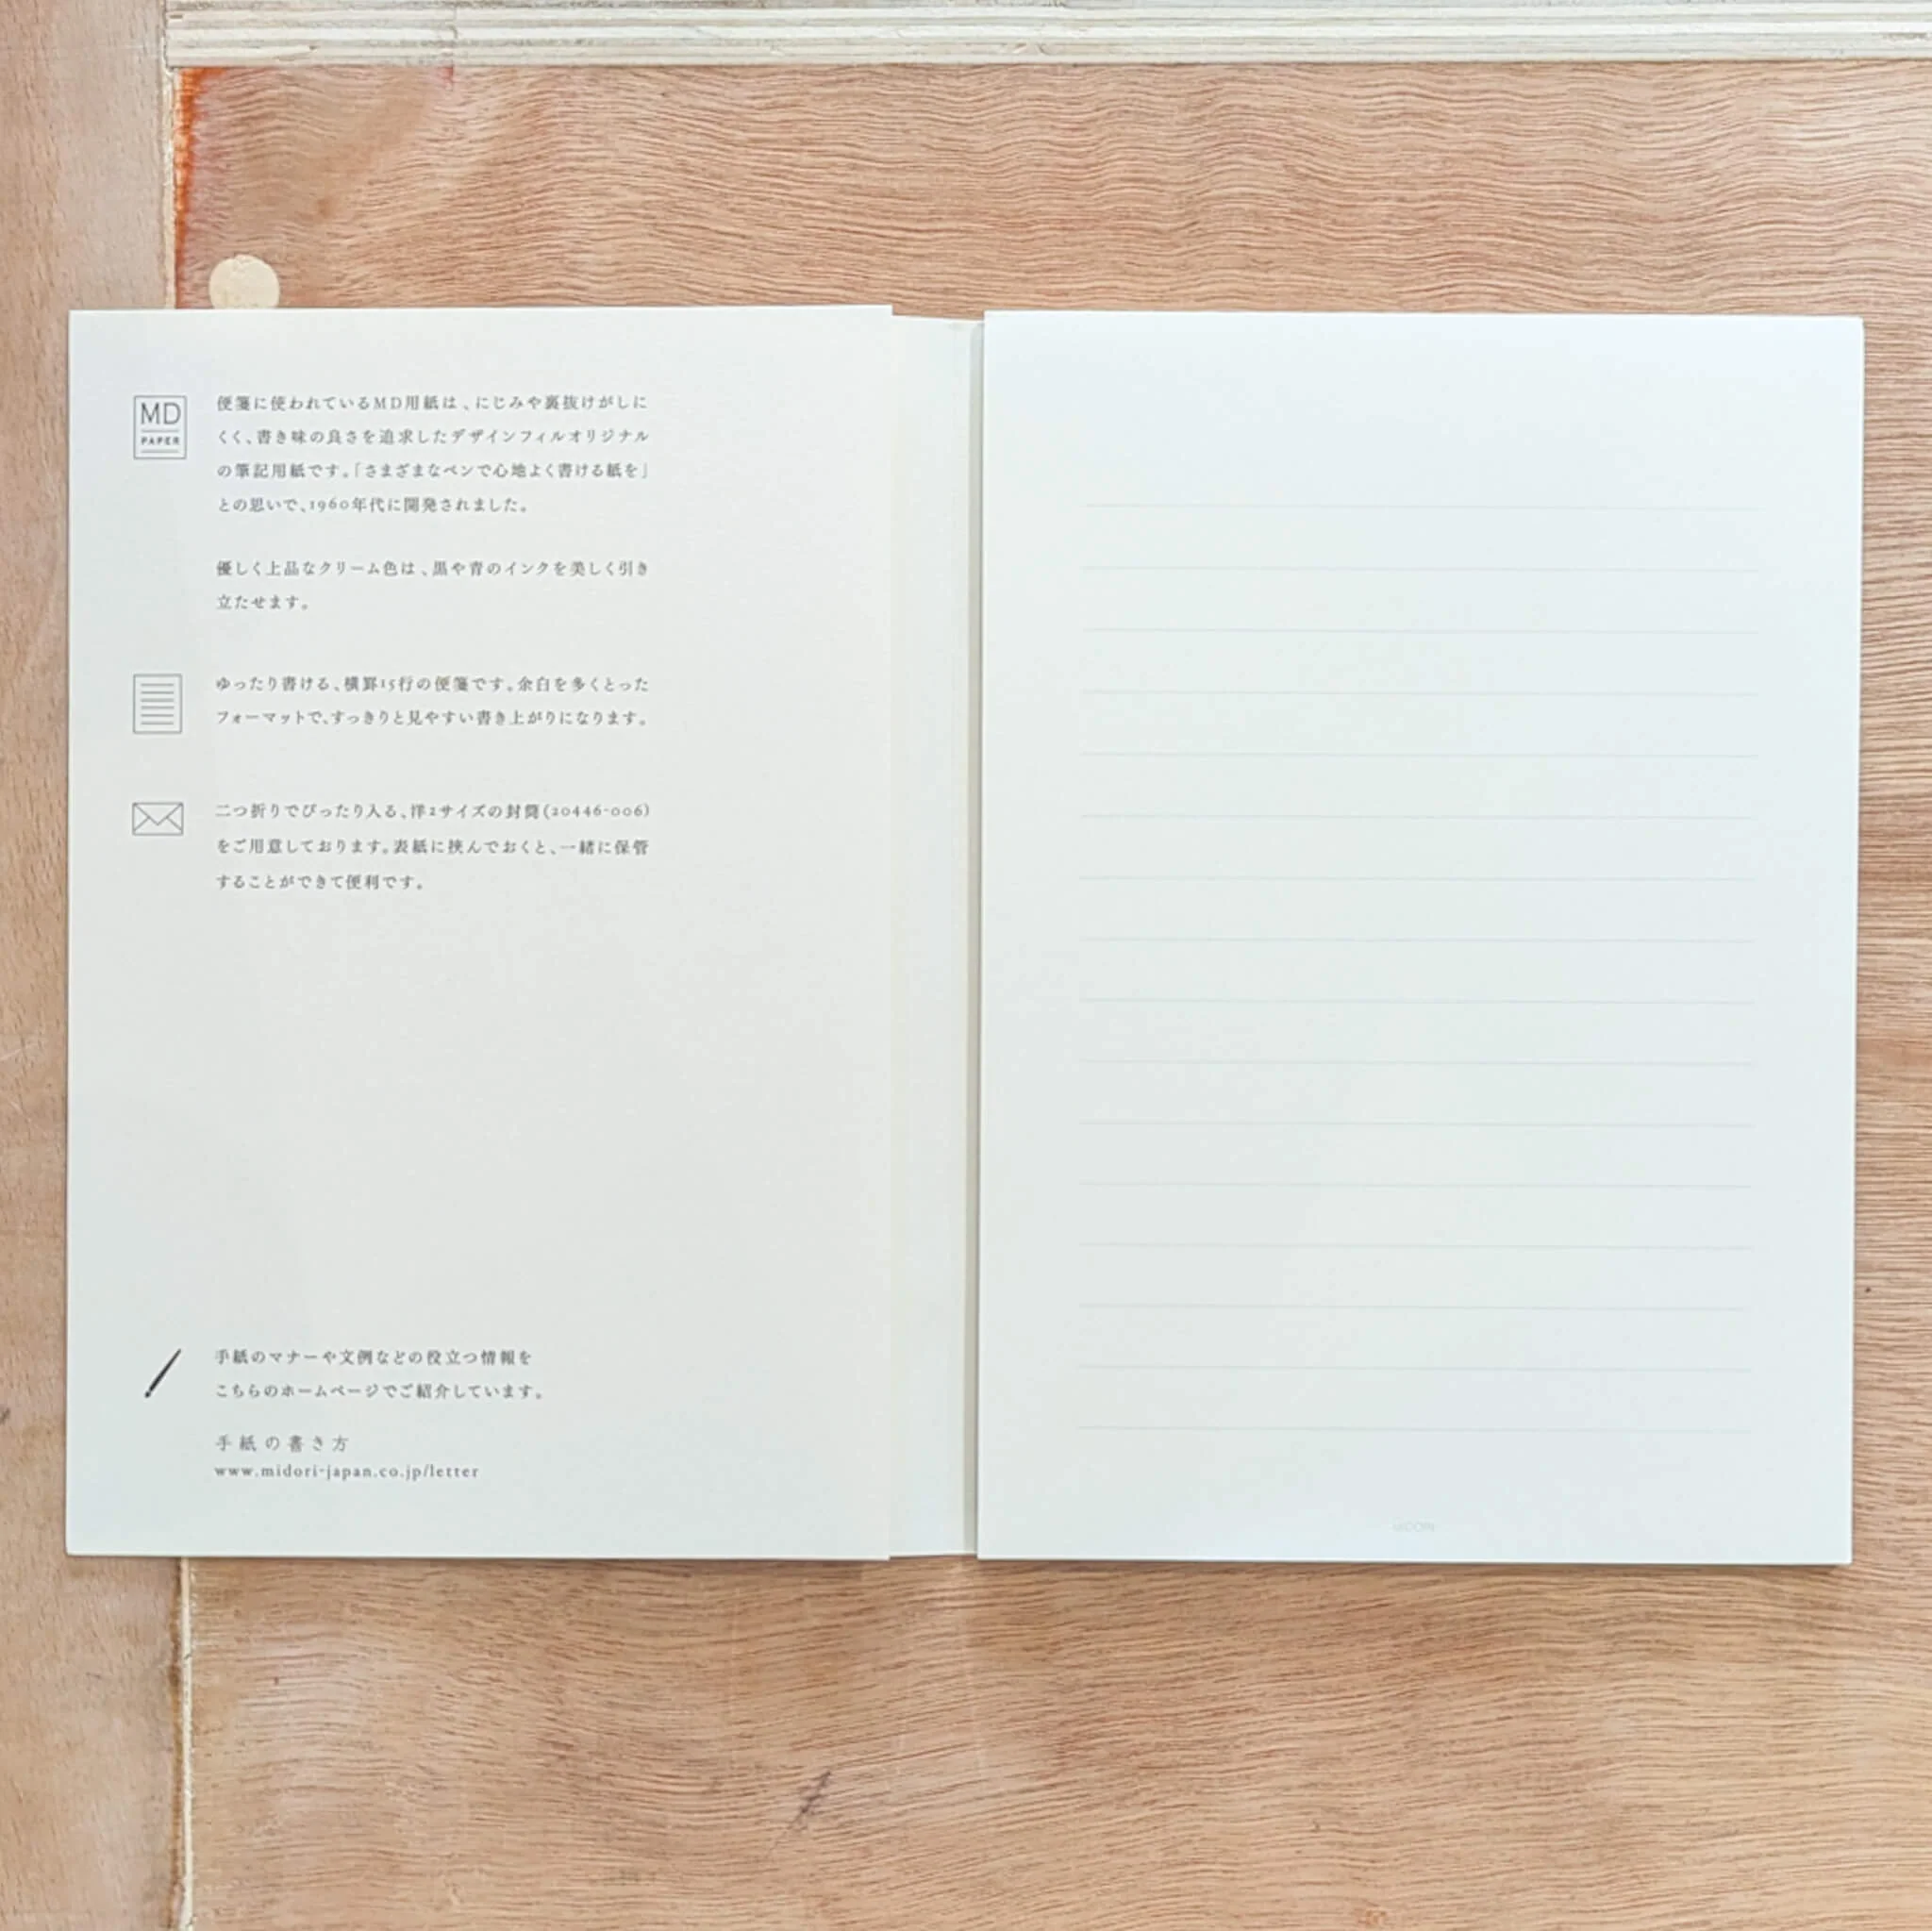 MD
PAPER
便箋に使われているMD用紙は、にじみや裏抜けがしに
くく、書き味の良さを追求したデザインフィルオリジナル
の筆記用紙です。「さまざまなペンで心地よく書ける紙を」
との思いで、1960年代に開発されました。
優しく上品なクリーム色は、黒や青のインクを美しく引き
立たせます。
ゆったり書ける、横罫15行の便箋です。余白を多くとった
フォーマットで、すっきりと見やすい書き上がりになります。
二つ折りでぴったり入る、洋2サイズの封筒(20446-006)
をご用意しております。表紙に挟んでおくと、一緒に保管
することができて便利です。
手紙のマナーや文例などの役立つ情報を
こちらのホームページでご紹介しています。
手紙の書き方
www.midori-japan.co.jp/letter
MIDORI